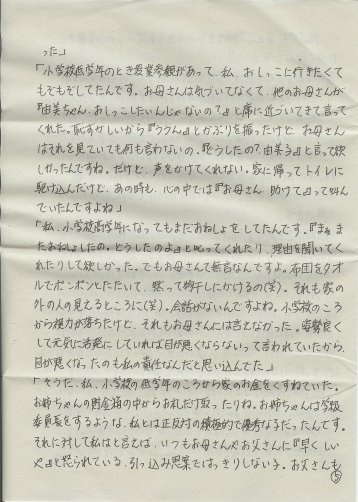 った。」
「小学校低学年のとき授業参観があって、私、おしっこに行きたくて
もぞもぞしてたんです。お母さんは気づいてなくて、他のお母さんが
『由美ちゃん、おしっこしたいんじゃないの？』と席に近づいてきて言って
くれた。恥ずかしいから『ううん』とかぶりを振ったけど、お母さん
はそれを見ていても何も言わないの。『どうしたの？由美子』と言って欲
しかったんですね。だけど、声をかけてくれない。家に帰ってトイレに
駆け込んだけど、あの時も、心の中では『お母さん、助けて』って叫ん
でいたんですよね」
「私、小学校高学年になってもまだおねしょをしてたんです。『まぁま
たおねしょしたの。どうしたのよ』と叱ってくれたり、理由を聞いてく
れたりして欲しかった。でもお母さんて無言なんですよ。布団をタオ
ルでポンポンとたたいて、黙って物干しにかけるの(笑)。それも家の
外の人の見えるところに(笑)。会話がないんですよね。小学校のころ
から視力が落ちたけど、それもお母さんには言えなかった。姿勢良く
して元気に活発にしていれば目が悪くならないって言われていたから、
目が悪くなったのも私の責任なんだと思い込んでた。」
「そうだ、私、小学校の低学年のころから家のお金をくすねていた。
お姉ちゃんの貯金箱の中からお札だけ取ったりね。お姉ちゃんは学級
委員長をするような、私とは正反対の積極的で優秀な子だったんです。
それに対して私はと言えば、いつもお母さんやお父さんに『早くしい
や』と怒られている、引っ込み思案とはっきりしない子。お父さんも
⑤